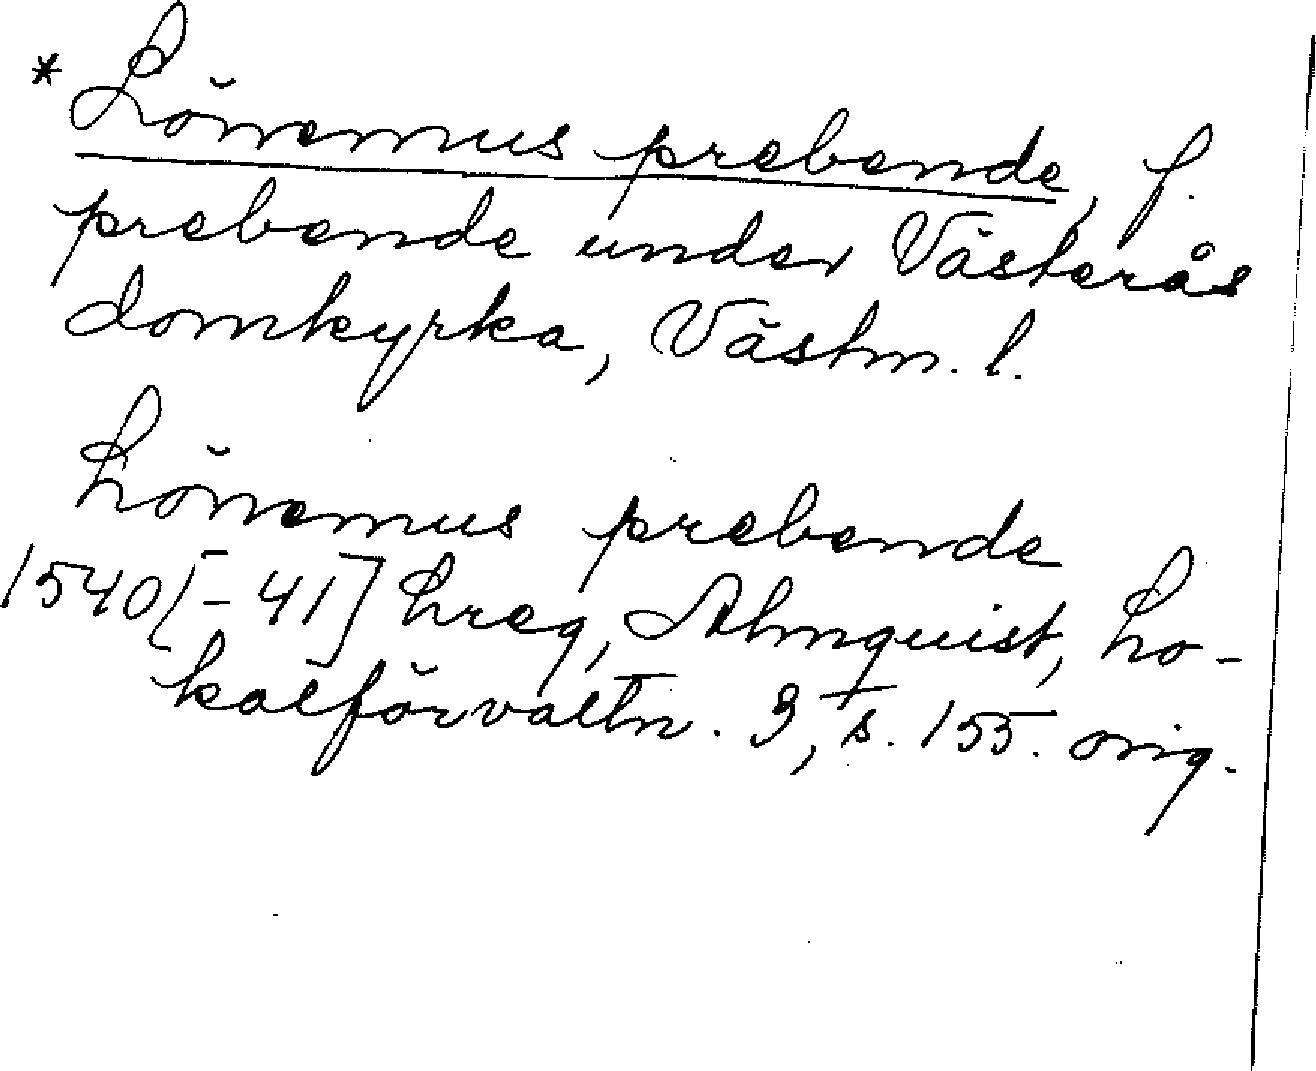 * Lönemus prebende, f.
prebende under Västerås
domkyrka, Västm. l.
Lönemus prebende
1540[-41] Lreg, Almquist, Lo-
kalförvaltn. 3, s. 155. orig.